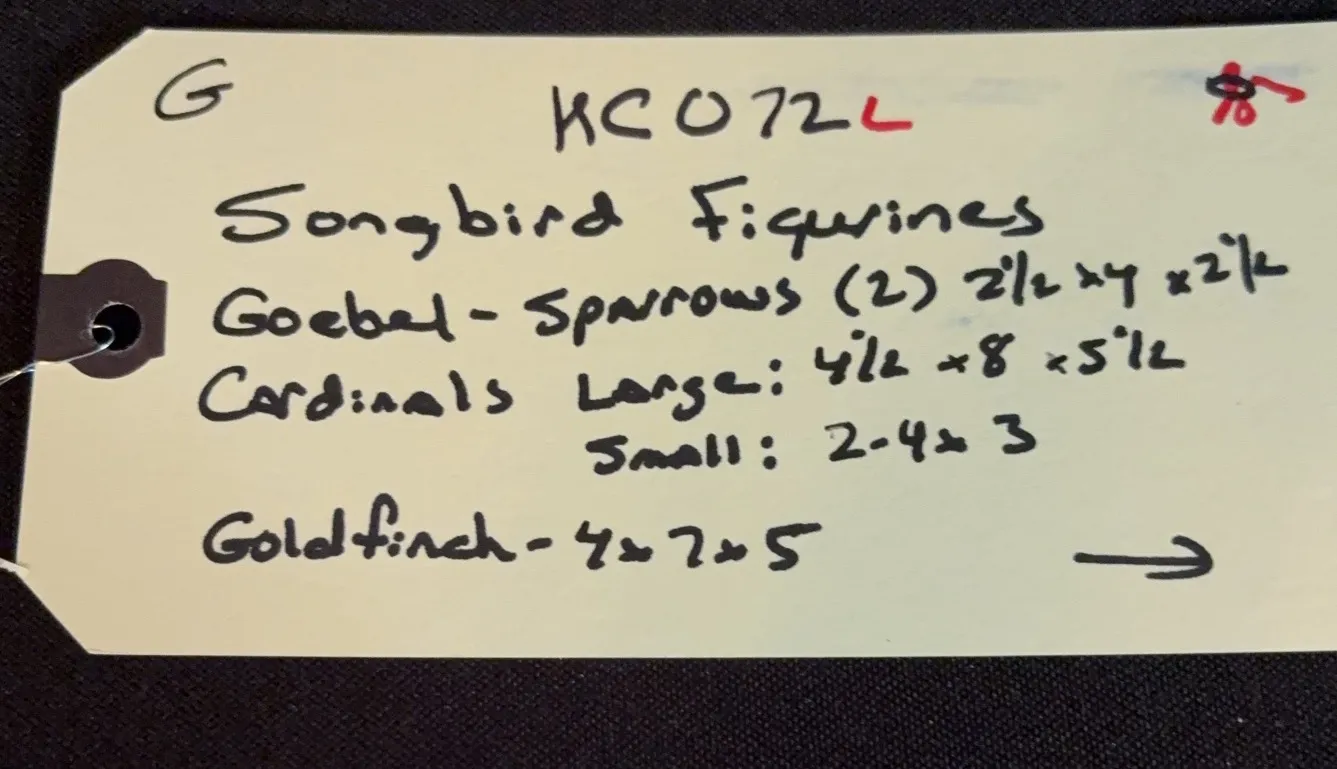 G
KC072L
Songbird Figurines
Goebel - Sparrows (2) 2 1/2 x 4 x 2 1/2
Cardinals Large: 4 1/2 x 8 x 5 1/2
Small: 2-4 x 3
Goldfinch - 4 x 7 x 5
→